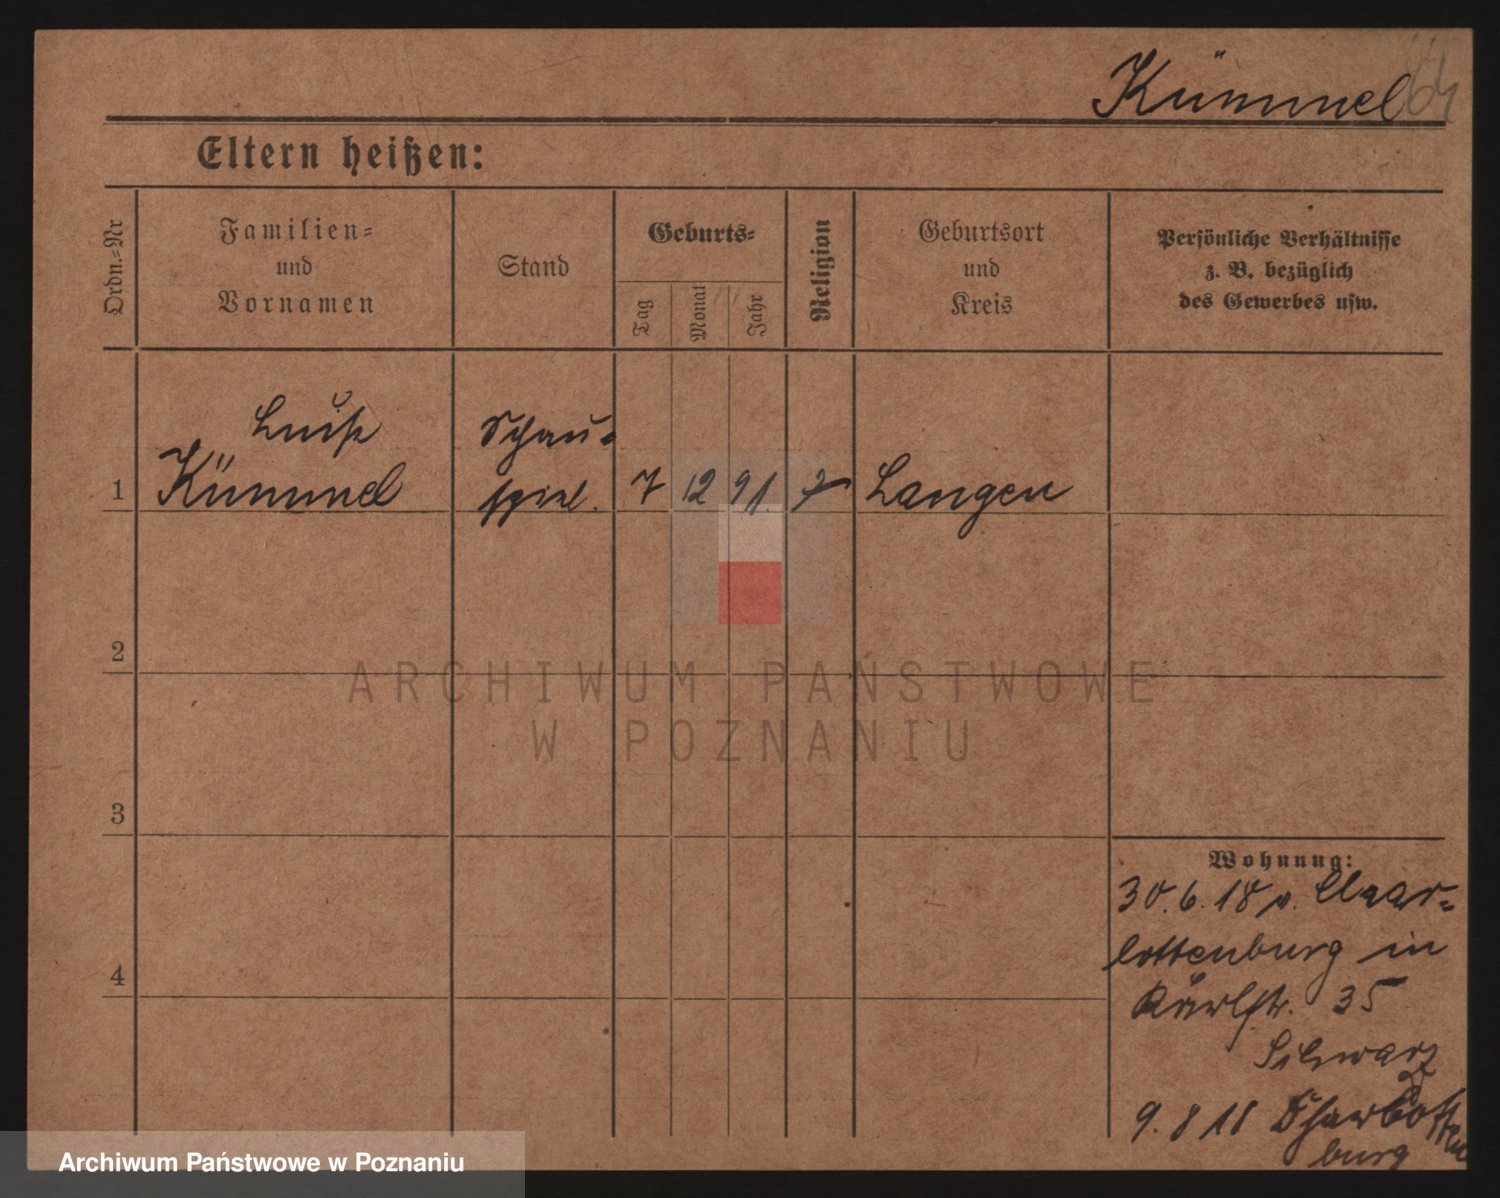 Kümmel
Eltern heißen:
Ordn.-Nr
Familien-
und
Vornamen
Stand
Geburts-
Tag
Monat
Jahr
Religion
Geburtsort
und
Kreis
Persönliche Verhältnisse
z. B. bezüglich
des Gewerbes usw.
Luise Schau-
1 Kümmel spiel. 7 12 91. Langen
2
3
4
Wohnung:
30.6.18 v. Char-
lottenburg in
Karlstr. 35
Schwarz
9. 8 18 Charlotten
burg
ARCHIWUM PAŃSTWOWE
W POZNANIU
Archiwum Państwowe w Poznaniu